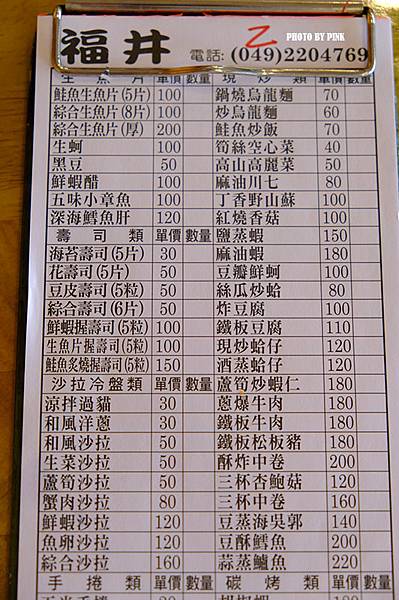 PHOTO BY PINK
福井 電話: (049)2204769
Z
生魚片 單價 數量 現炒類 單價 數量
鮭魚生魚片(5片) 100 鍋燒烏龍麵 70
綜合生魚片(8片) 100 炒烏龍麵 60
綜合生魚片(厚) 200 鮭魚炒飯 70
生蚵 100 筍絲空心菜 40
黑豆 50 高山高麗菜 50
鮮蝦醋 100 麻油川七 80
五味小章魚 100 丁香野山蘇 100
深海鱈魚肝 120 紅燒香菇 100
壽司類 單價 數量 鹽蒸蝦 150
海苔壽司(5片) 30 麻油蝦 180
花壽司(5片) 50 豆瓣鮮蚵 100
豆皮壽司(5粒) 50 絲瓜炒蛤 80
綜合壽司(6片) 50 炸豆腐 100
鮮蝦握壽司(5粒) 100 鐵板豆腐 110
生魚片握壽司(5粒) 100 現炒蛤仔 120
鮭魚炙燒握壽司(5粒) 150 酒蒸蛤仔 120
沙拉冷盤類 單價 數量 蘆筍炒蝦仁 180
涼拌過貓 30 蔥爆牛肉 180
和風洋蔥 30 鐵板牛肉 180
和風沙拉 50 鐵板松板豬 180
生菜沙拉 50 酥炸中卷 200
蘆筍沙拉 50 三杯杏鮑菇 120
蟹肉沙拉 80 三杯中卷 160
鮮蝦沙拉 120 豆蒸海吳郭 140
魚卵沙拉 120 豆酥鱈魚 200
綜合沙拉 160 蒜蒸鱸魚 220
手捲類 單價 數量 碳烤類 單價 數量